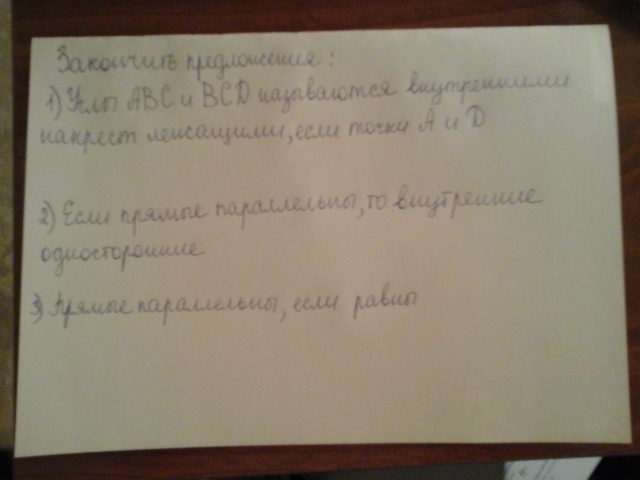 Закончить предложения:
1) Углы ABC и BCD называются внутренними
накрест лежащими, если точки A и D
2) Если прямые параллельны, то внутренние
односторонние
3) Прямые параллельны, если равны